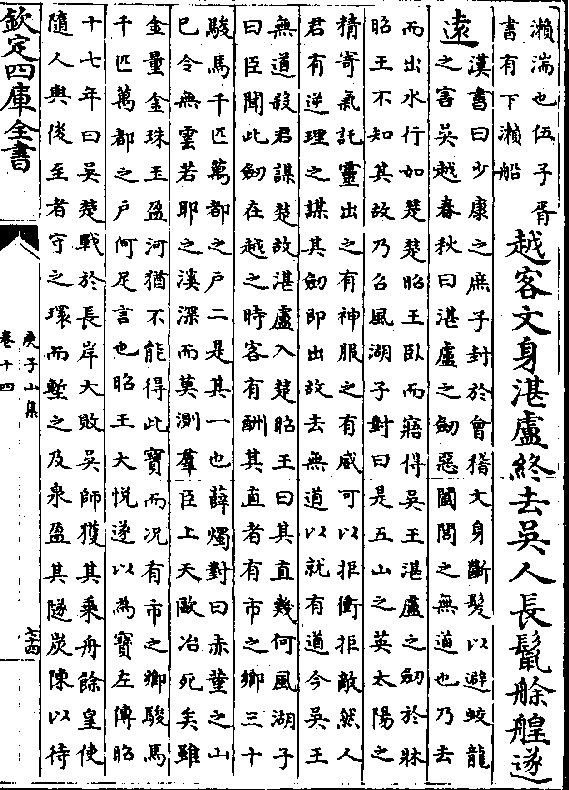 瀬湍也伍子胥
書有下瀬船
越客文身湛盧終去吳人長鬛艅艎遂
遠
漢書曰少康之庶子封於會稽文身斷髮以避蛟龍
之害吳越春秋曰湛盧之劍惡闔閭之無道也乃去
而出水行如楚楚昭王卧而寤得吳王湛盧之劍於牀
昭王不知其故乃召風湖子對曰是五山之英太陽之
精寄氣託靈出之有神服之有威可以拒衝拒敵然人
君有逆理之謀其劍即出故去無道以就有道今吳王
無道殺君謀楚故湛盧入楚昭王曰其直幾何風湖子
曰臣聞此劍在越之時客有酬其直者有市之鄉三十
駿馬千匹萬都之户二是其一也薛燭對曰赤堇之山
已令無雲若耶之溪深而莫測羣臣上天歐冶死矣雖
金量金珠玉盈河猶不能得此寶而况有市之鄉駿馬
千匹萬都之户何足言也昭王大悦遂以為寶左傳昭
十七年曰吳楚戰於長岸大敗吳師獲其乗舟餘皇使
隨人與後至者守之環而塹之及泉盈其隧炭陳以待
欽定四庫全書
庾子山集
卷十四